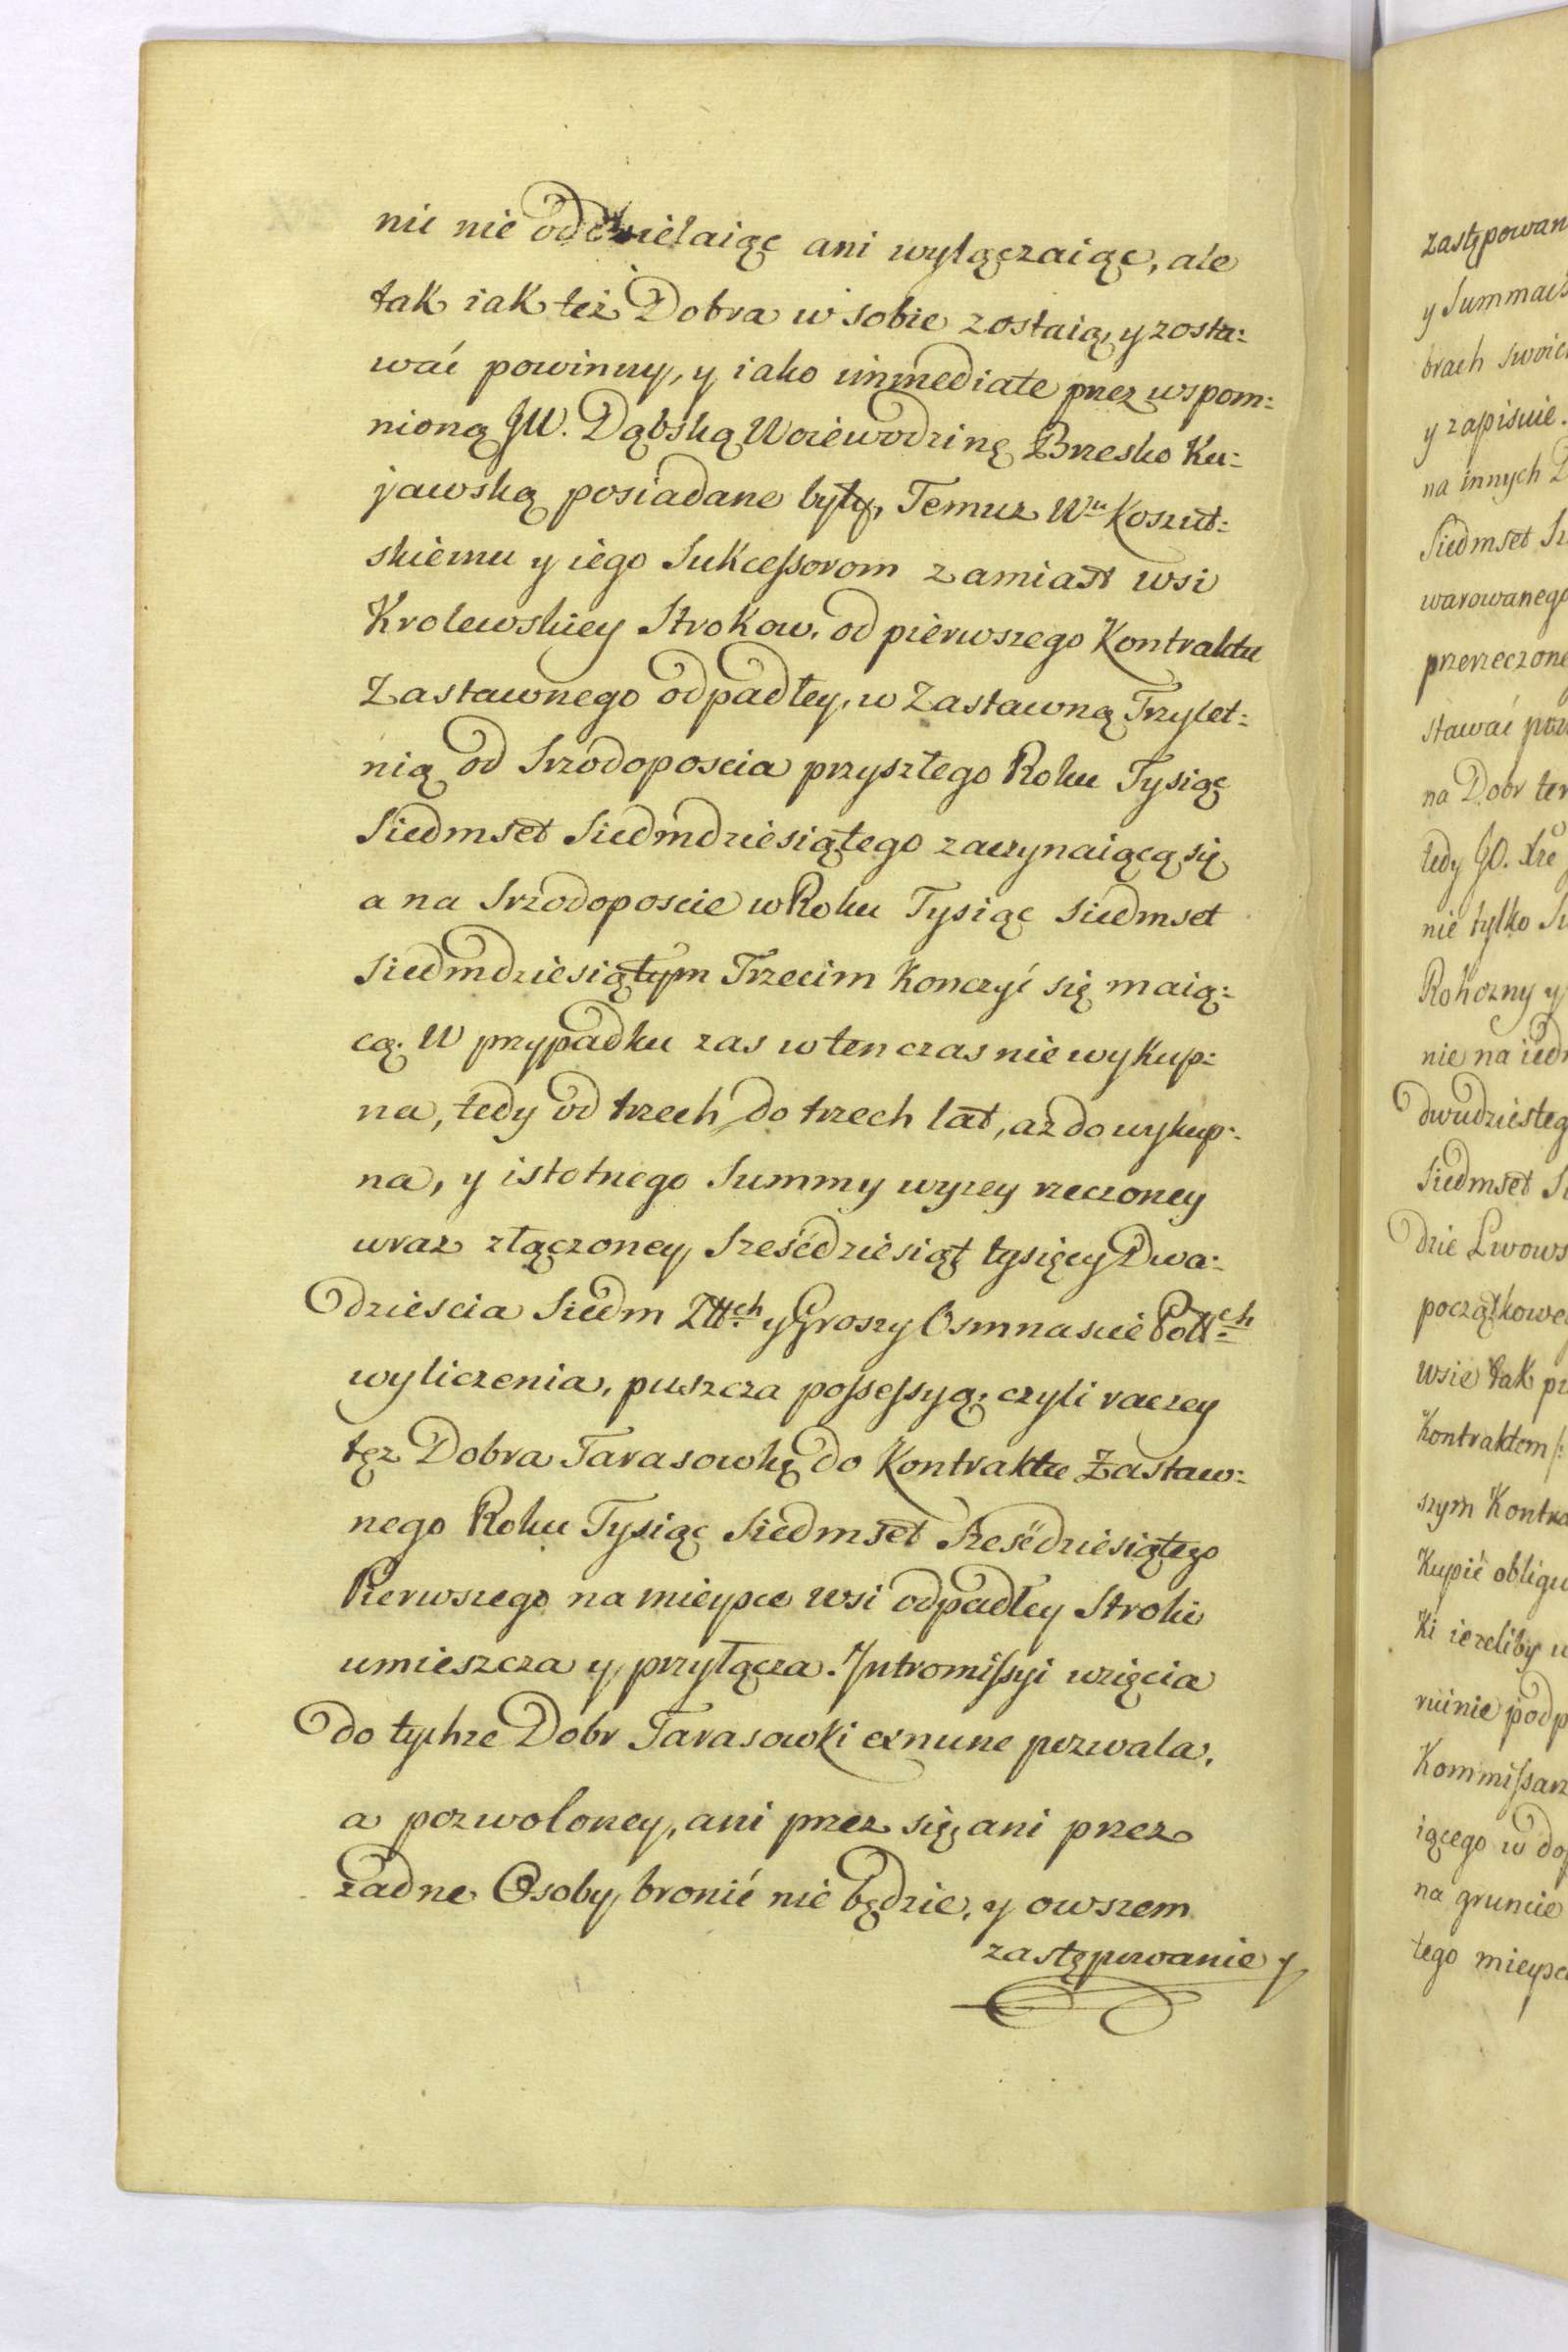 nic nie oddzielaiąc ani wyłączaiąc, ale
tak iak też Dobra w sobie zostaią, y zosta:
wać powinny, y iako immediate przez wspom:
nioną JW. Dąbską Woiewodzinę Brzesko Ku:
jawską posiadane były, Temuz Wu Koszut:
skiemu y iego Sukcessorom zamiast wsi
Krolewskiey Strokow, od pierwszego Kontraktu
Zastawnego odpadłey, w Zastawną Trzylet:
nią od Srzodoposcia przyszłego Roku Tysiąc
Siedmset Siedmdziesiątego zaczynaiącą się
a na Srzodoposcie w Roku Tysiąc Siedmset
Siedmdziesiątym Trzecim konczyć się maią:
cą. W przypadku zas w ten czas nie wykup:
na, tedy od trzech do trzech lat, az do wykup:
na, y istotnego Summy wyzey rzeczoney
wraz złączoney, Sześćdziesiąt tysięcy Dwa:
dziescia Siedm Złłch y Groszy Osmnascie Pollch
wyliczenia, puszcza possessyą; czyli raczey
tęz Dobra Tarasowkę do Kontraktu Zastaw:
nego Roku Tysiąc Siedmset Sześćdziesiątego
Pierwszego na mieysce wsi odpadłey Stroki
umieszcza y przyłącza. Intromissyi wzięcia
do tychze Dobr Tarasowki exnunc pozwala,
a pozwoloney, ani przez się, ani przez
zadne Osoby, bronić nie będzie, y owszem
zastępowanie y
zastępowan
y Summach
brach swoich
y zapisuie.
na innych D
Siedmset Sz
warowanego
przerzeczone
stawać pow
na Dobr ter
tedy JO. Xże
nie tylko Su
Rokozny y
nie na iedn
dwudziesteg
Siedmset Si
dzie Lwows
początkowe
wsie tak pr
Kontraktom /:
szym Kontra
Kupić obligu
Ki iezeliby w
ruinie podp
Kommissarz
iącego w do
na gruncie
tego mieysc